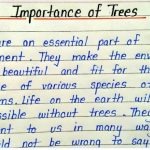 Importance of Trees
are an essential part of
ment. They make the env
beautiful and fit for th
e of various species o
ms. Life on the earth will
ssible without trees. The
nt to us in many wa
ld not be wrong to say